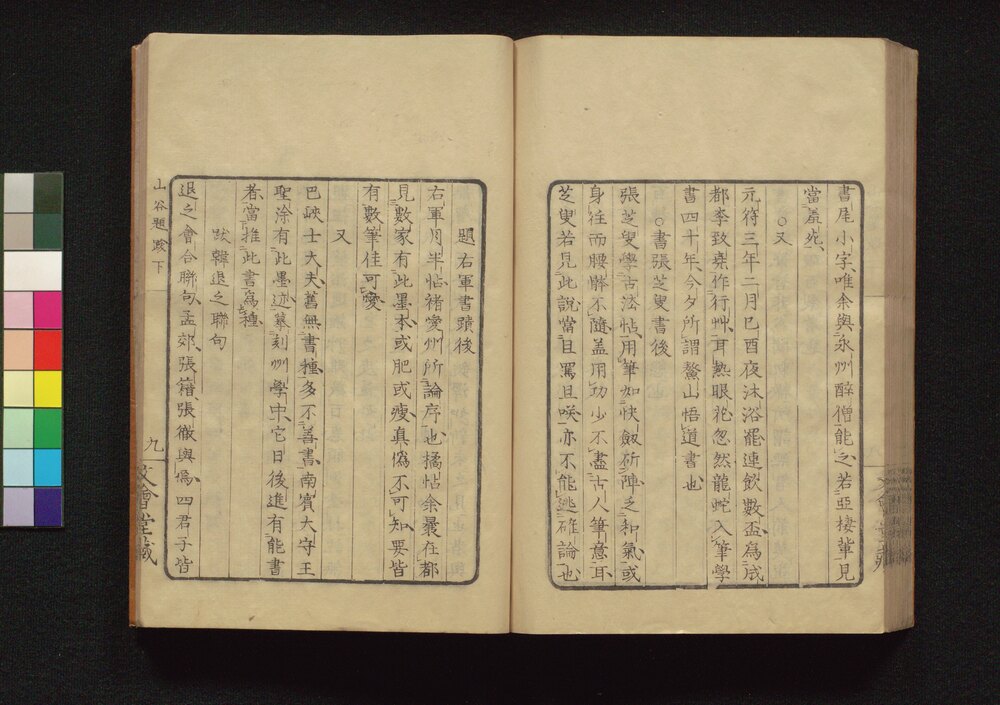 書尾小字唯余與永州醉僧能之若亞棲輩見
當羞死
○又
元符三年二月己酉夜沐浴罷連飮數盃爲成
都李致堯作行艸耳熱眼花忽然龍蛇入筆學
書四十年今夕所謂鰲山悟道書也
○書張芝叟書後
張芝叟學古法帖用筆如快劔斫陣之和氣或
身徃而腰髂不隨盖用功少不盡古人筆意耳
芝叟若見此說當且罵且咲亦不能逃確論也
題右軍書蹟後
右軍月半帖褚愛州所論序也橘帖余曩在都
見數家有此墨本或肥或瘦真僞不可知要皆
有數筆佳可愛
又
巴峽士大夫舊無書種多不善書南賓大守王
聖涂有此墨迹摹刻州學中它日後進有能書
者當推此書爲種
跋韓退之聯句
退之會合聯句孟郊張籍張徹與焉四君子皆
山谷題跋下
九
文會堂藏